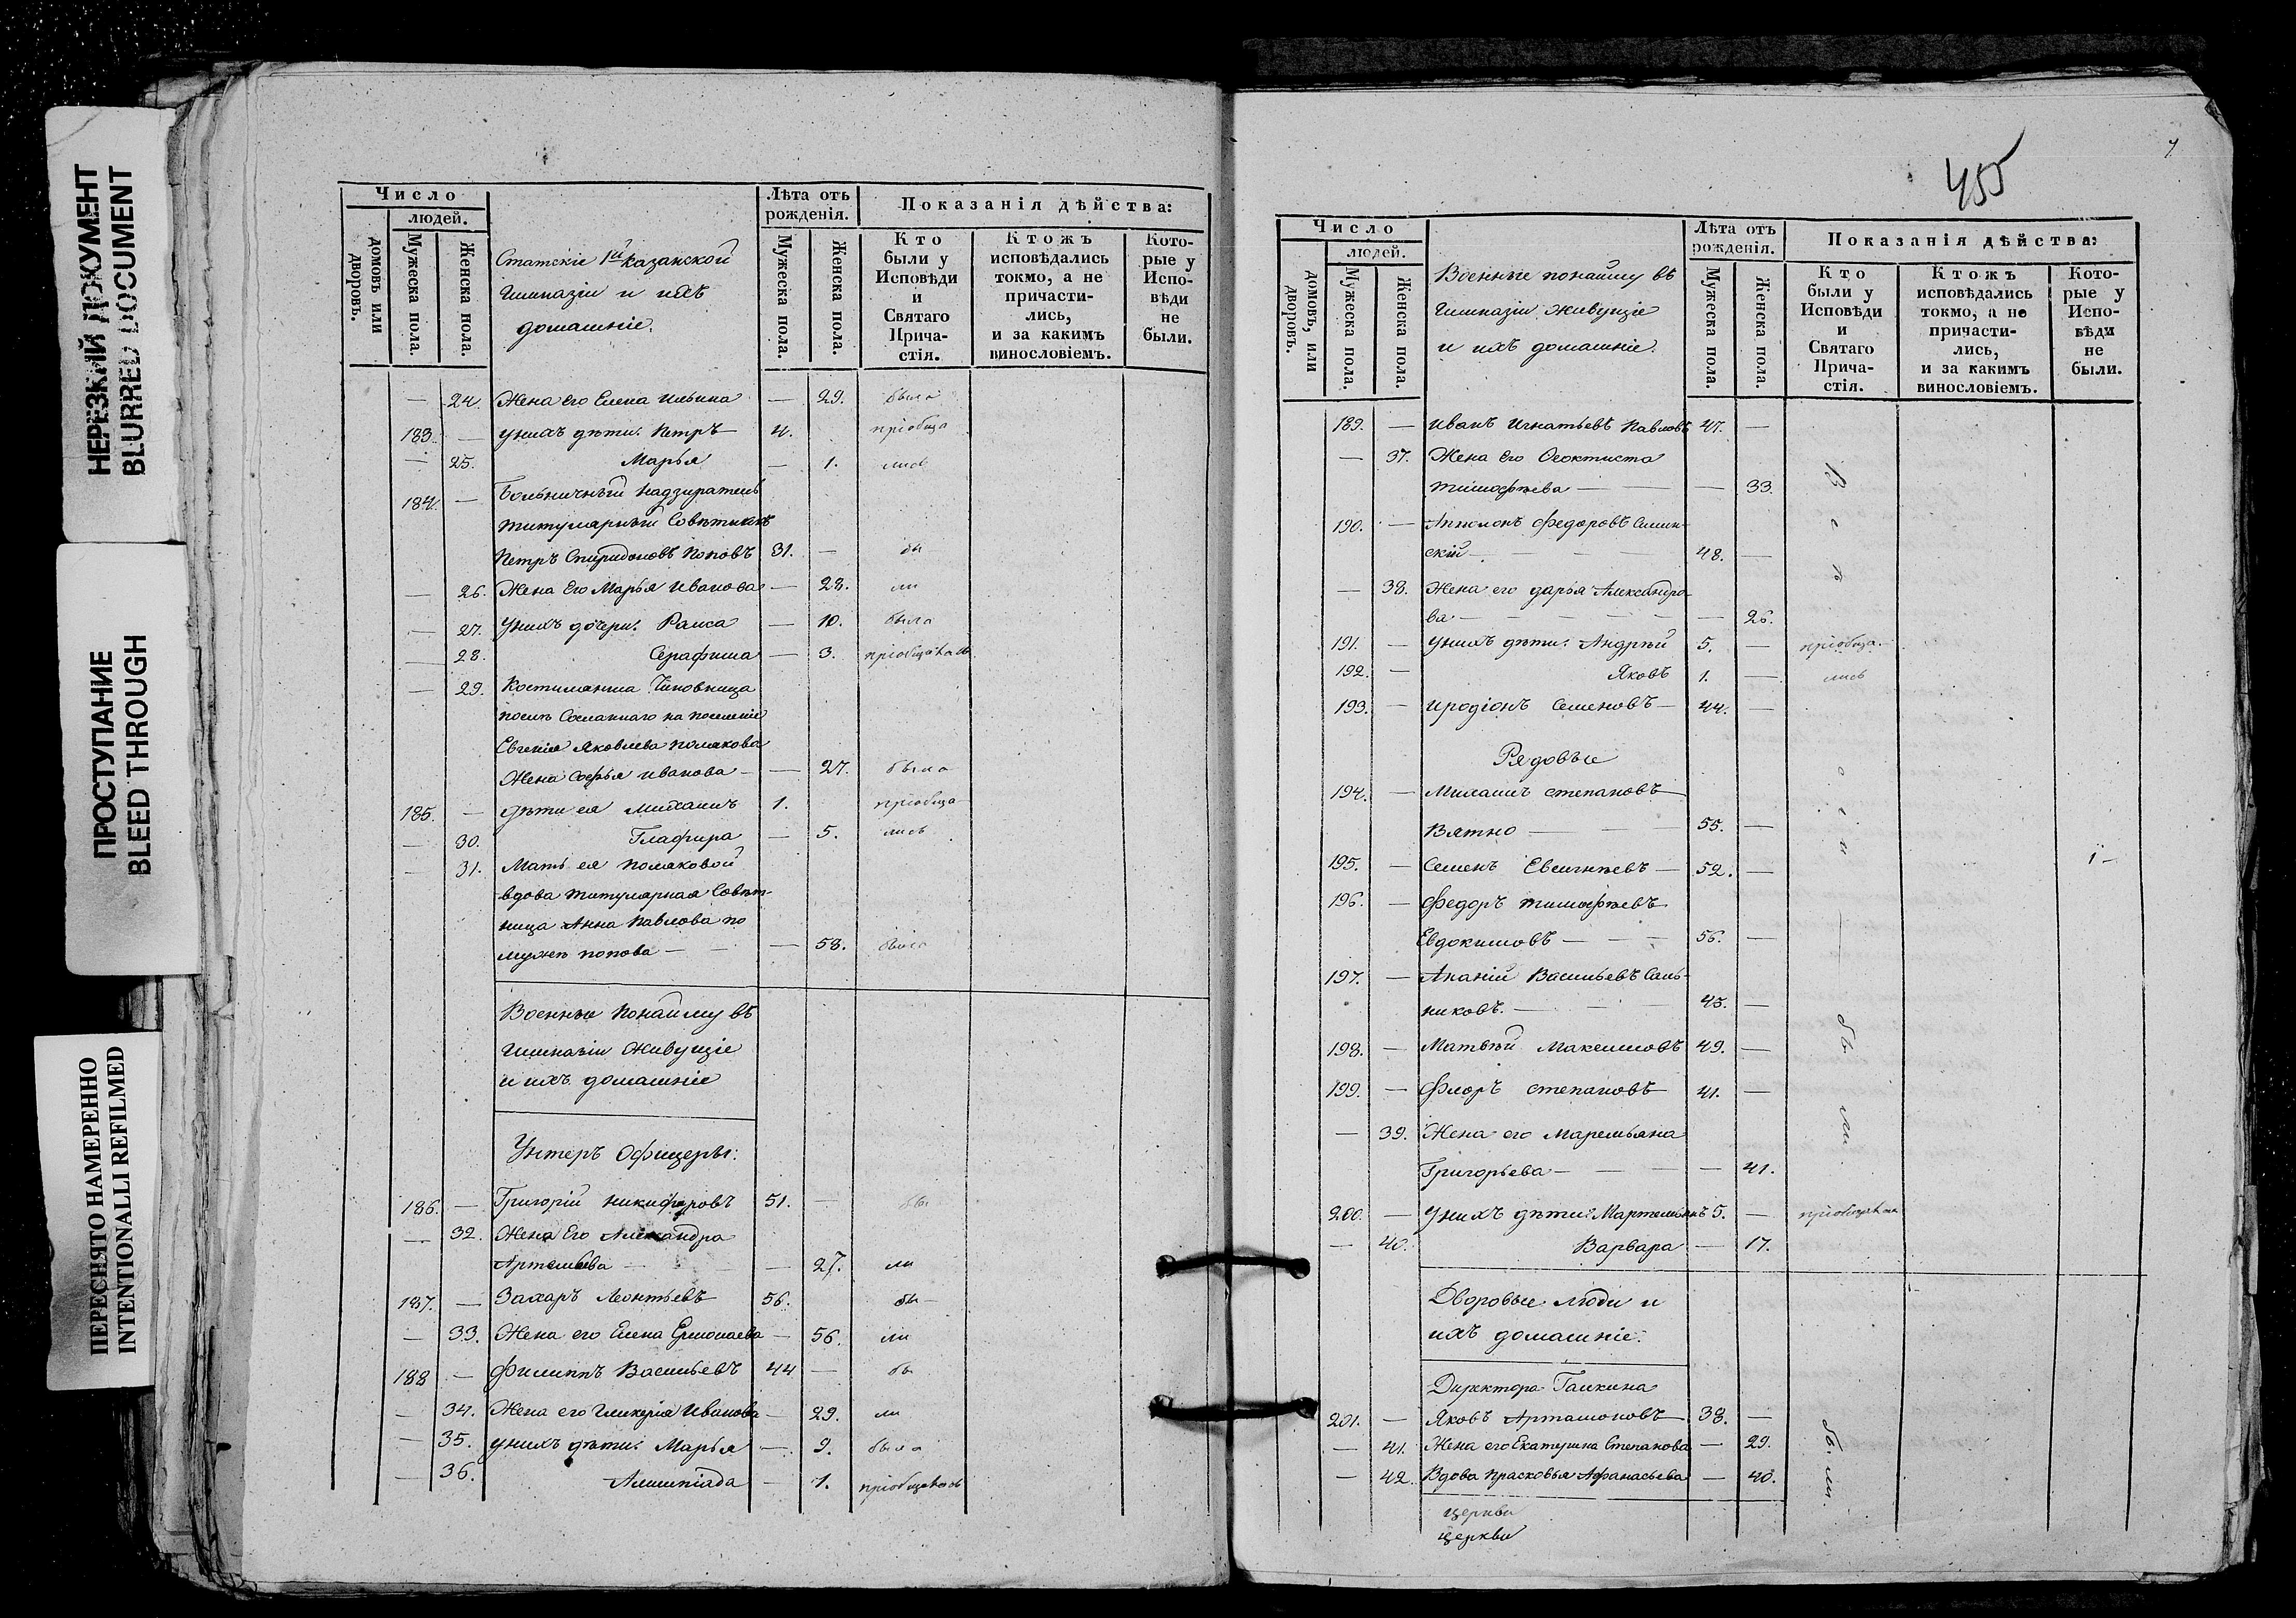 НЕРЕЗКИЙ ДОКУМЕНТ
BLURRED DOCUMENT
ПРОСТУПАНИЕ
BLEED THROUGH
ПЕРЕСНЯТО НАМЕРЕННО
INTENTIONALLI REFILMED
Число
людей.
домовъ или дворовъ.
Мужеска пола.
Женска пола.
Статскіе 1й Казанской
Гимназіи и ихъ
домашніе.
Лѣта отъ рожденія.
Мужеска пола.
Женска пола.
Показанія дѣйства:
Кто были у Исповѣди и Святаго Причастія.
Ктожъ исповѣдались токмо, а не причастились, и за какимъ винословіемъ.
Которые у Исповѣди не были.
— 24. Жена его Елена Ильина — 29. была
183. — у нихъ дѣти: Петръ 4. пріобща
— 25. Марья — 1. лись
184. — Больничный надзиратель
титулярный Совѣтникъ
Петръ Спиридоновъ Поповъ 31. — бы
— 26. Жена Его Марья Иванова — 28. ли
— 27. У нихъ дочери: Раиса — 10. была
— 28. Серафима — 3. пріобщалась
— 29. Костимянша Чиновница
Сосланнаго на поселеніе
Евгенія Яковлева Полякова
Жена Софья Иванова — — 27. была
185. — Дѣти ея Михаилъ 1. пріобща
— 30. Глафира — 5. лись
— 31. Мать ея Поляковой
вдова титулярная Совѣт-
ница Анна Павлова по
мужѣ Попова — — 58. была
Военные по найму въ
Гимназіи Живущіе
и ихъ домашніе
Унтеръ Офицеры:
186. — Григорій Никифоровъ 51. — бы
— 32. Жена Его Александра
Артемьева — — 27. ли
187. — Захаръ Леонтьевъ 56. бы —
— 33. Жена его Елена Ермолаева — 56. ли
188 — Филиппъ Васильевъ 44 — бы
— 34. Жена его Гликерія Иванова — 29. ли
— 35. у нихъ дѣти: Марья — 9. была
— 36. Алимпіада — 1. пріобщалась
455
Число
людей.
домовъ, или дворовъ.
Мужеска пола.
Женска пола.
Военные по найму въ
Гимназіи Живущіе
и ихъ домашніе.
Лѣта отъ рожденія.
Мужеска пола.
Женска пола.
Показанія дѣйства:
Кто были у Исповѣди и Святаго Причастія.
Ктожъ исповѣдались токмо, а не причастились, и за какимъ винословіемъ.
Которые у Исповѣди не были.
189. — Иванъ Игнатьевъ Павловъ 47. —
— 37. Жена Его Феоктиста
Тимофѣева — — — 33.
190. — Апполонъ Федоровъ Силин-
скій — — — 48. —
— 38. Жена его Дарья Александро-
ва — — — 26.
191. — у нихъ дѣти: Андрѣй 5. — пріобща-
192. — Яковъ 1. — лись
193. — Иродіонъ Семеновъ — 44. —
Рядовые
194. — Михаилъ Степановъ
Вятно — — 55. —
195. — Семенъ Евсигнѣевъ — 52. — 1 —
196. — Федоръ Тимофѣевъ
Евдокимовъ — — — 56. —
197. — Ананій Васильевъ Саль-
никовъ. — — 45. —
198. — Матвѣй Максимовъ 49. —
199. — Флоръ Степановъ 41. —
— 39. Жена его Маремьяна
Григорьева — — — 41.
200. — У нихъ дѣти: Мартемьянъ 5. — пріобщался
— 40. Варвара — 17.
бы
ли
Дворовые люди и
ихъ домашніе:
Директора Галкина
201. — Яковъ Артамоновъ — 38. —
— 41. Жена его Екатерина Степанова — 29.
— 42. Вдова Прасковья Афанасьева — 40.
бы. ли.
церкви
церкви